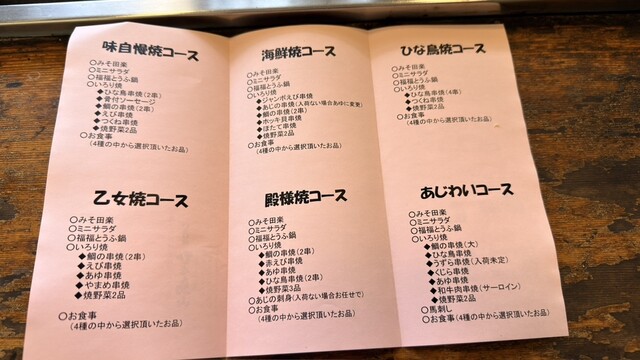 味自慢焼コース
○みそ田楽
○ミニサラダ
○福福とうふ鍋
○いろり焼
◆ひな鳥串焼(2串)
◆骨付ソーセージ
◆鯛の串焼(2串)
◆えび串焼
◆つくね串焼
◆焼野菜2品
○お食事
(4種の中から選択頂いたお品)
海鮮焼コース
○みそ田楽
○ミニサラダ
○福福とうふ鍋
○いろり焼
◆ジャンボえび串焼
◆あじの串焼(入荷ない場合あゆに変更)
◆鯛の串焼(2串)
◆ホッキ貝串焼
◆ほたて串焼
◆焼野菜2品
○お食事
(4種の中から選択頂いたお品)
ひな鳥焼コース
○みそ田楽
○ミニサラダ
○福福とうふ鍋
○いろり焼
◆ひな鳥串焼(4串)
◆つくね串焼
◆焼野菜2品
○お食事
(4種の中から選択頂いたお品)
乙女焼コース
○みそ田楽
○ミニサラダ
○福福とうふ鍋
○いろり焼
◆鯛の串焼(2串)
◆えび串焼
◆あゆ串焼
◆やまめ串焼
◆焼野菜2品
○お食事
(4種の中から選択頂いたお品)
殿様焼コース
○みそ田楽
○ミニサラダ
○福福とうふ鍋
○いろり焼
◆鯛の串焼(2串)
◆赤えび串焼
◆あゆ串焼
◆ひな鳥串焼(2串)
◆焼野菜3品
○あじの刺身(入荷ない場合お任せで)
○お食事
(4種の中から選択頂いたお品)
あじわいコース
○みそ田楽
○ミニサラダ
○福福とうふ鍋
○いろり焼
◆鯛の串焼(大)
◆ひな鳥串焼
◆うずら串焼(入荷未定)
◆くじら串焼
◆あゆ串焼
◆和牛肉串焼(サーロイン)
◆焼野菜2品
○馬刺し
○お食事
(4種の中から選択頂いたお品)